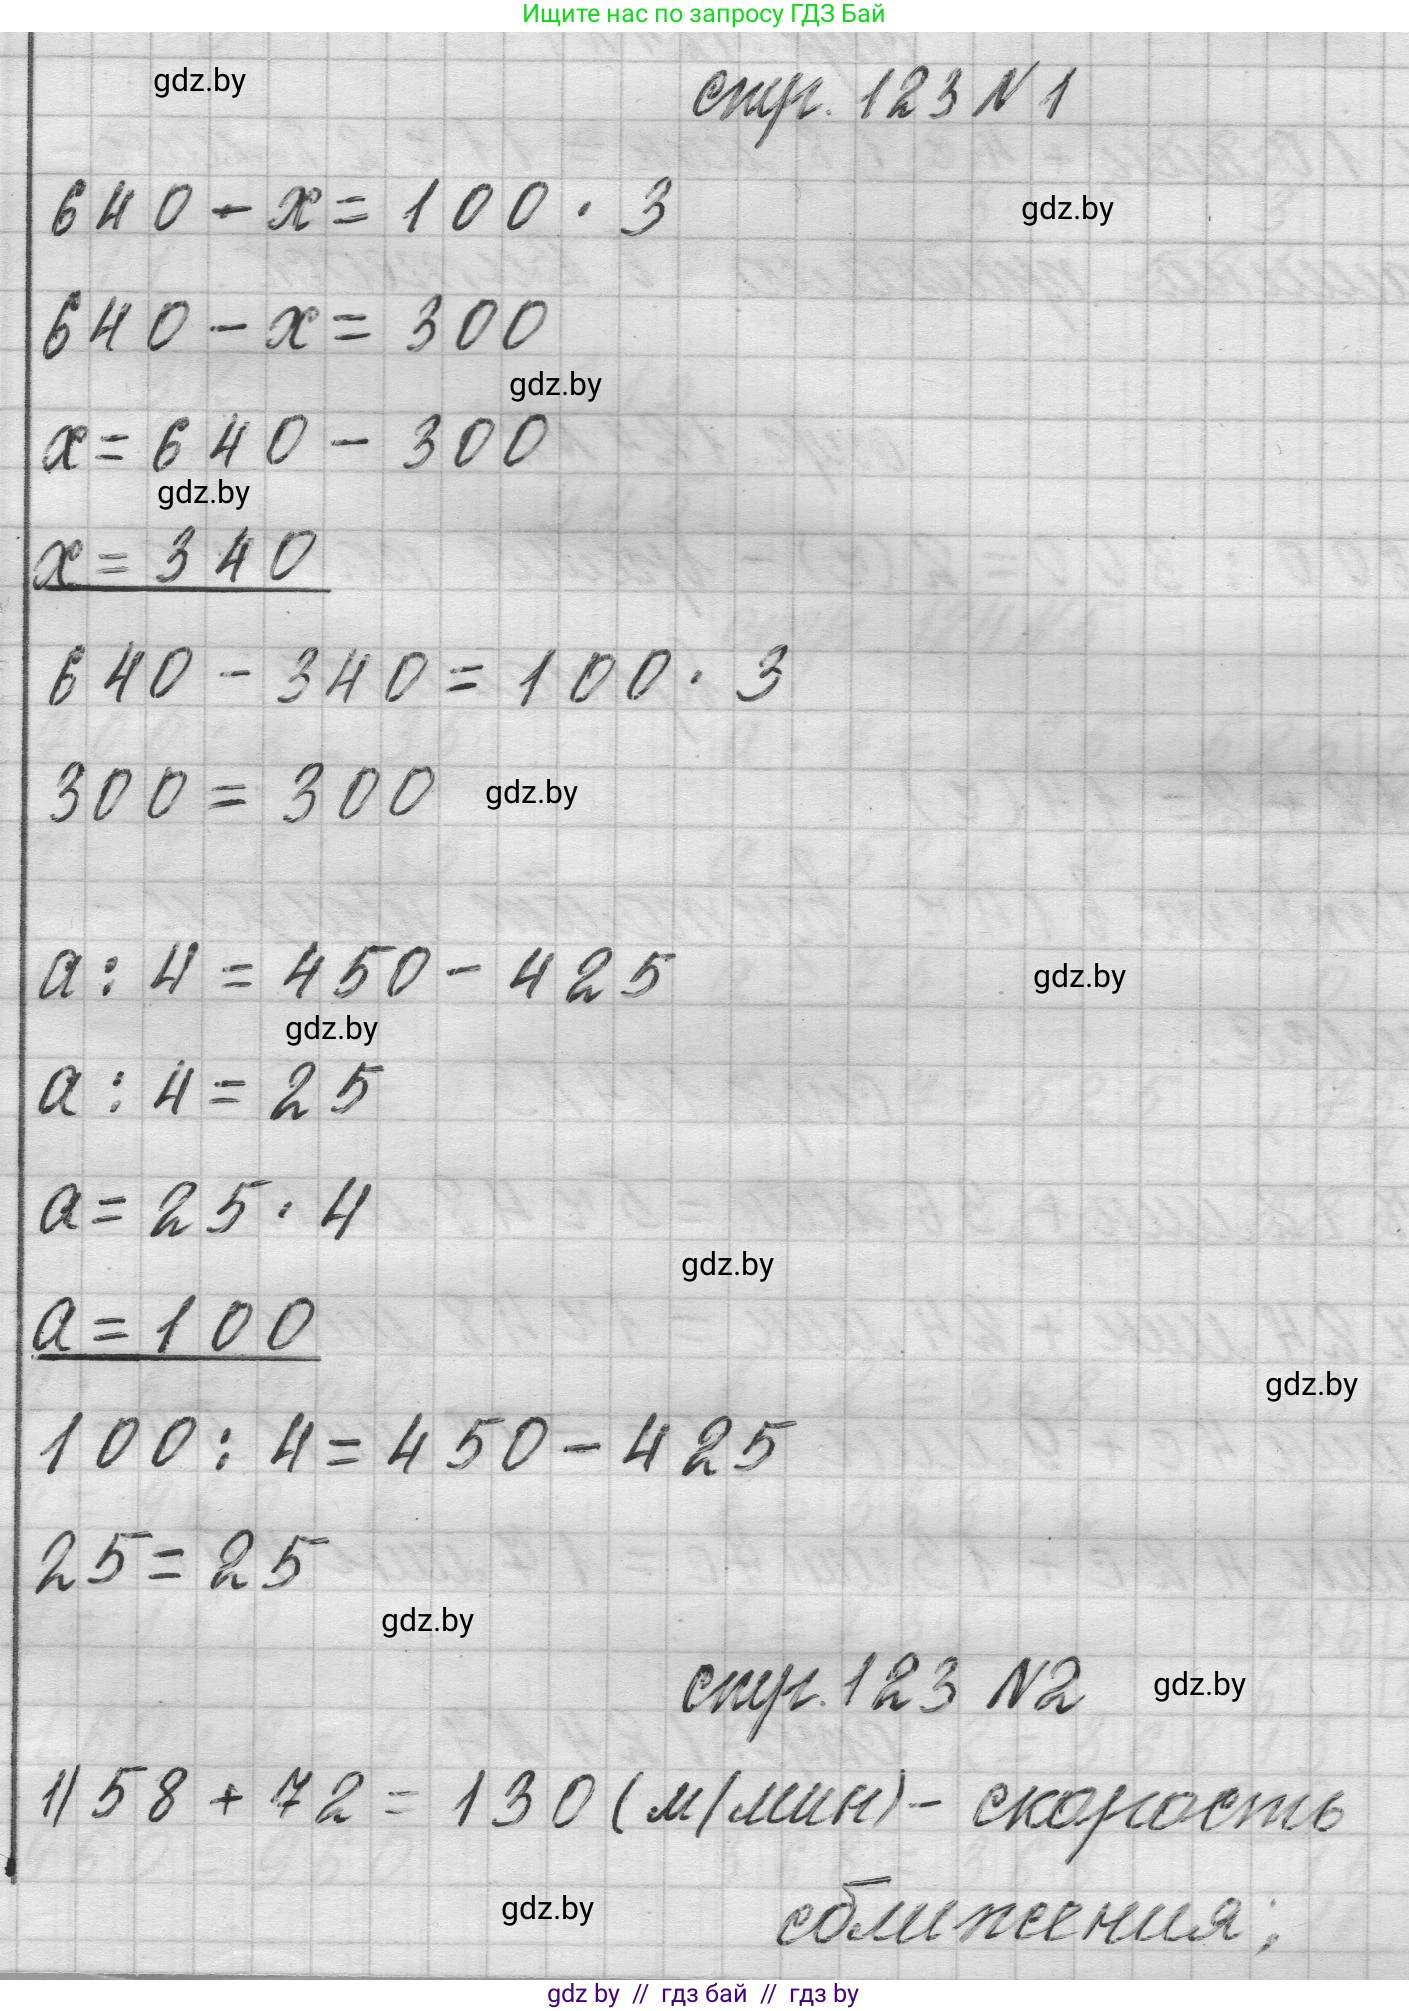 Ищите нас по запросу ГДЗ Бай
gdz.by
стр. 123 N 1
640 - x = 100 · 3
gdz.by
640 - x = 300
gdz.by
x = 640 - 300
gdz.by
x = 340
640 - 340 = 100 · 3
300 = 300
gdz.by
a : 4 = 450 - 425
gdz.by
gdz.by
a : 4 = 25
a = 25 · 4
gdz.by
a = 100
gdz.by
100 : 4 = 450 - 425
25 = 25
gdz.by
стр. 123 N2
gdz.by
1) 58 + 72 = 130 (м/мин) - скорость
gdz.by
сближения;
gdz by // гдз бай // гдз by